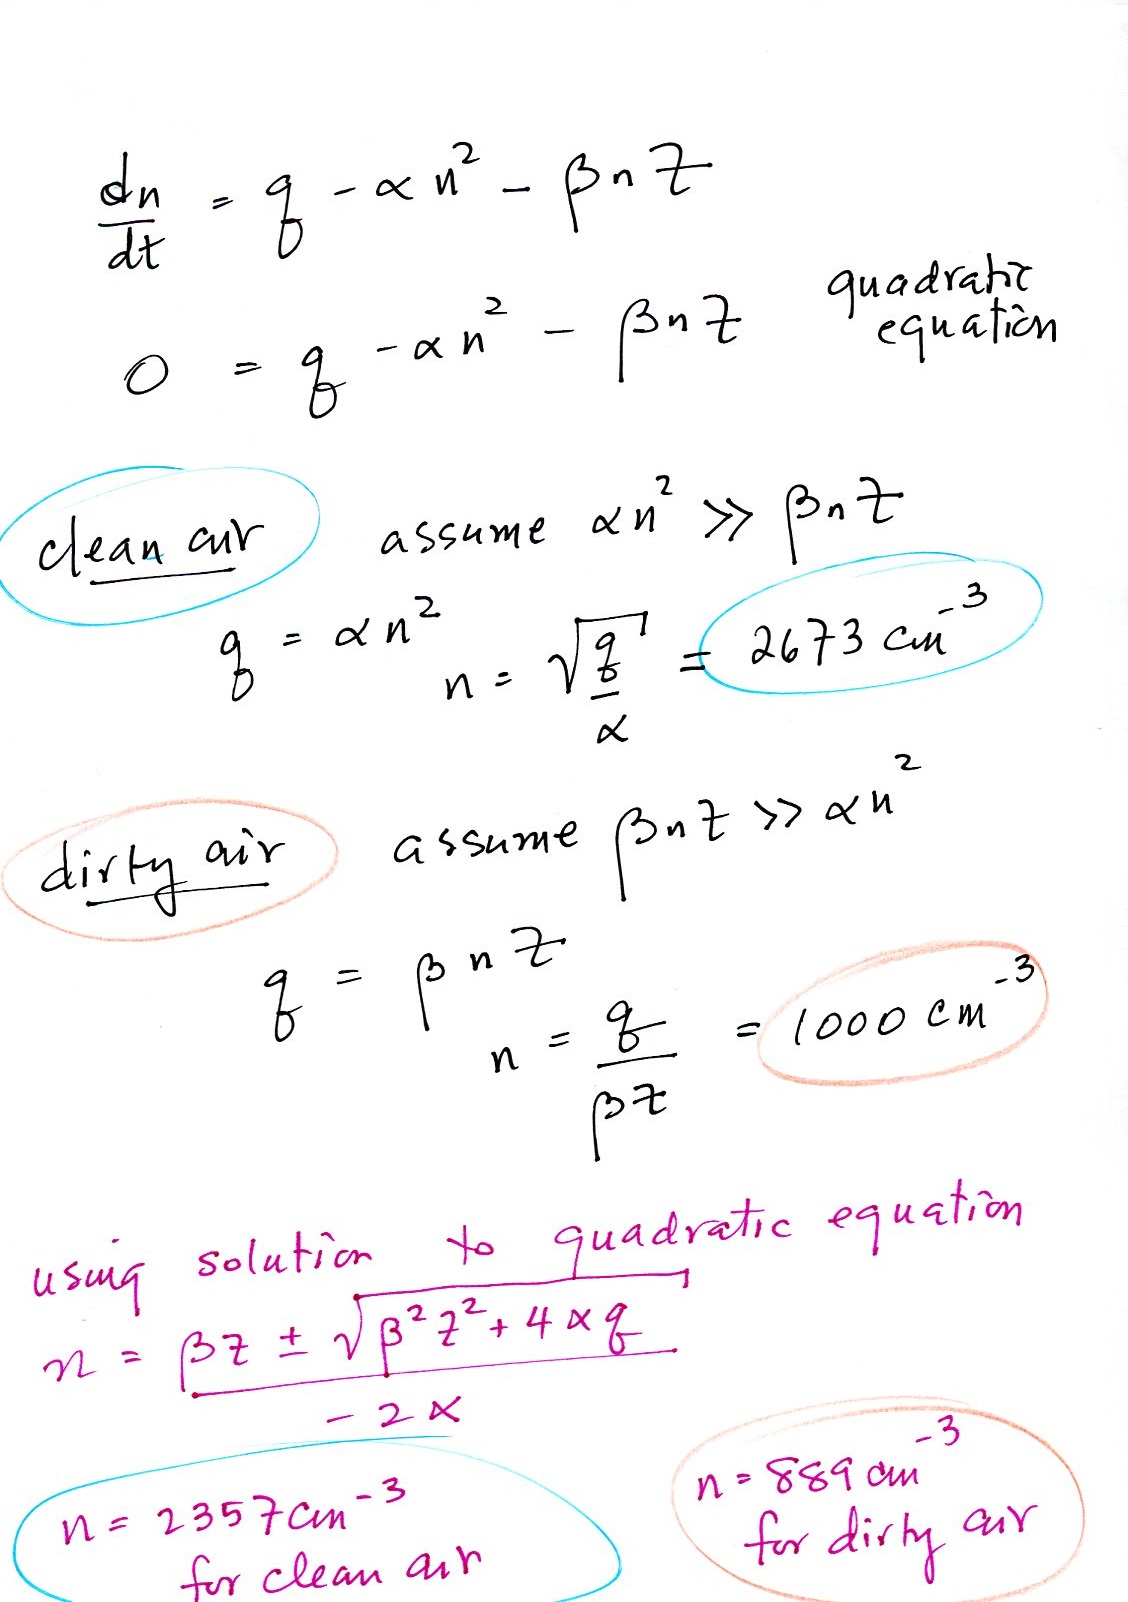 dn/dt = q - αn² - βnZ
0 = q - αn² - βnZ quadratic equation
clean air assume αn² >> βnZ
q = αn²
n = √(q/α) = 2673 cm⁻³
dirty air assume βnZ >> αn²
q = βnZ
n = q/βZ = 1000 cm⁻³
using solution to quadratic equation
n = (βZ ± √(β²Z² + 4αq))/(-2α)
n = 2357 cm⁻³
for clean air
n = 889 cm⁻³
for dirty air